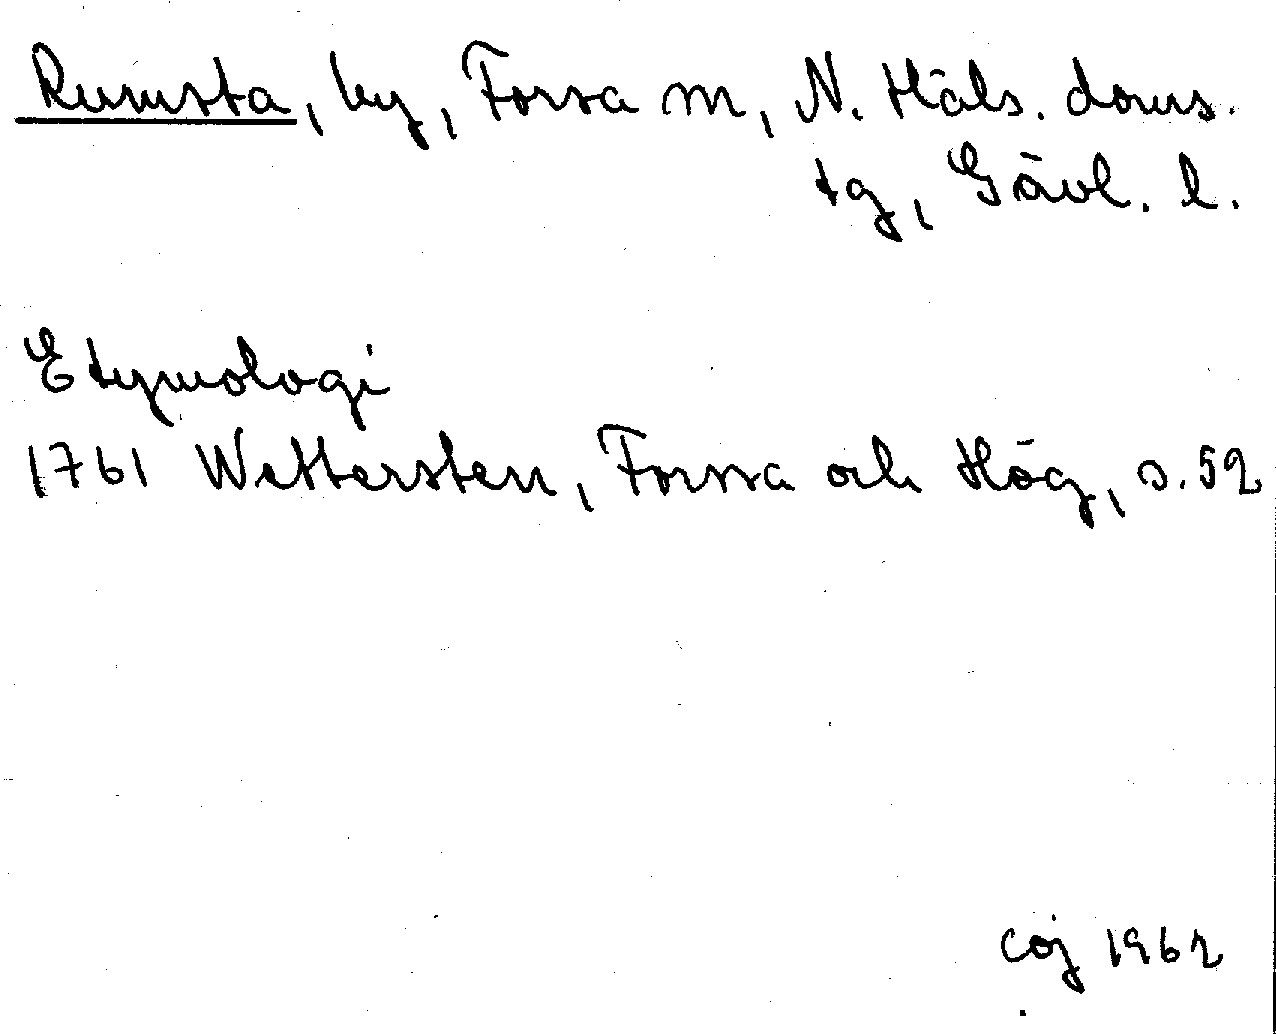 Rumsta, by, Forsa sn, N. Häls. doms.
tg, Gävl. l.
Etymologi
1761 Wettersten, Forssa och Hög, s. 52
CGJ 1962